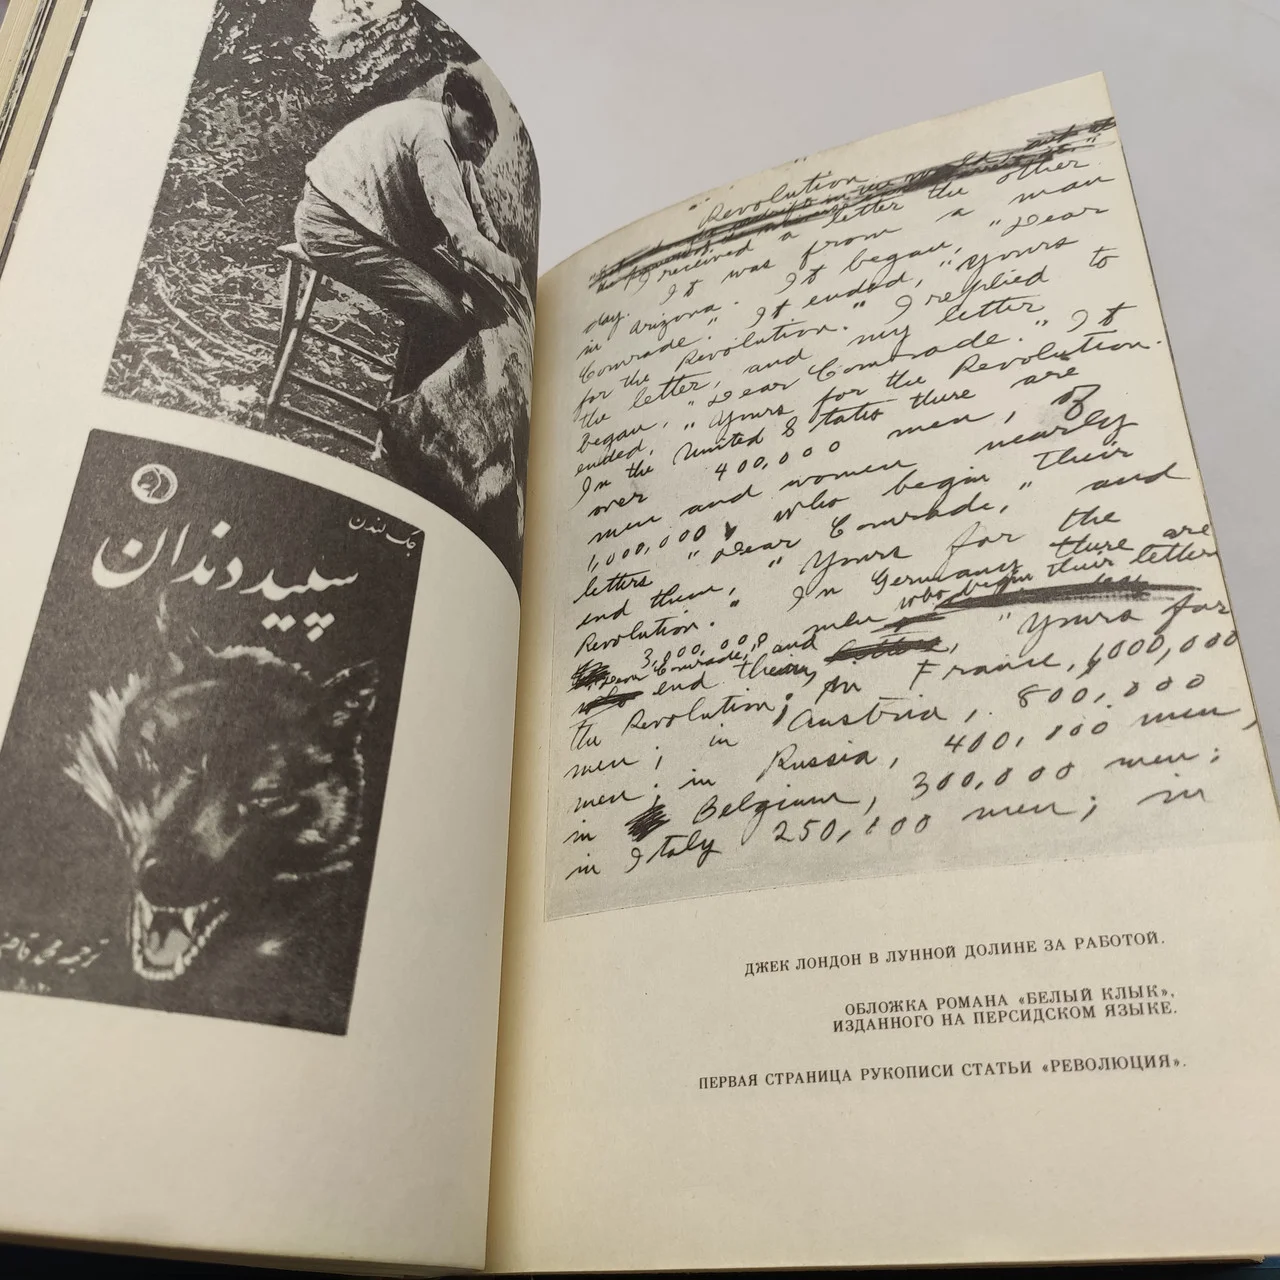 جک لندن
سپید دندان
ترجمه محمد قاضی
" Revolution "
I received a letter the other
day. It was from a man
in Arizona. It began, "Dear
Comrade." It ended, "Yours
for the Revolution." I replied to
the letter, and my letter
began, "Dear Comrade." It
ended, "Yours for the Revolution.
In the United States there are
over 400,000 men, of
men and women nearly
1,000,000, who begin their
letters "Dear Comrade," and
end them, "Yours for the
Revolution." In Germany there are
3,000,000 men who begin their letters
"Dear Comrade," and
end them, "Yours for
the Revolution; in France, 1,000,000
men; in Austria, 800,000
men; in Russia, 400,000 men,
in Belgium, 300,000 men;
in Italy 250,000 men; in
ДЖЕК ЛОНДОН В ЛУННОЙ ДОЛИНЕ ЗА РАБОТОЙ.
ОБЛОЖКА РОМАНА «БЕЛЫЙ КЛЫК»,
ИЗДАННОГО НА ПЕРСИДСКОМ ЯЗЫКЕ.
ПЕРВАЯ СТРАНИЦА РУКОПИСИ СТАТЬИ «РЕВОЛЮЦИЯ».